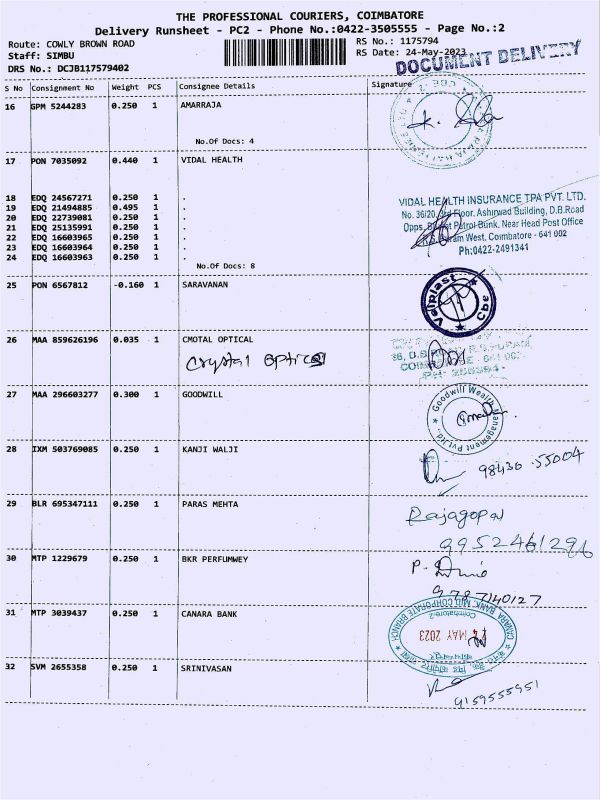 THE PROFESSIONAL COURIERS, COIMBATORE
Delivery Runsheet - PC2 - Phone No.:0422-3505555 - Page No.:2
Route: COWLY BROWN ROAD RS No.: 1175794
Staff: SIMBU RS Date: 24-May-2023
DRS No.: DCJB117579402 DOCUMENT DELIVERY
S No Consignment No Weight PCS Consignee Details Signature
16 GPM 5244283 0.250 1 AMARRAJA
No.Of Docs: 4
17 PON 7035092 0.440 1 VIDAL HEALTH
18 EDQ 24567271 0.250 1 .
19 EDQ 21494885 0.495 1 .
20 EDQ 22739081 0.250 1 .
21 EDQ 25135991 0.250 1 .
22 EDQ 16603965 0.250 1 .
23 EDQ 16603964 0.250 1 .
24 EDQ 16603963 0.250 1 .
No.Of Docs: 8
VIDAL HEALTH INSURANCE TPA PVT. LTD.
No. 36/20, 3rd Floor, Ashirwad Building, D.B.Road
Opps, Bharat Petrol Bunk, Near Head Post Office
R.S.Puram West, Coimbatore - 641 002
Ph:0422-2491341
25 PON 6567812 -0.160 1 SARAVANAN
Velplast Cbe
26 MAA 859626196 0.035 1 CMOTAL OPTICAL
Crystal optics
27 MAA 296603277 0.300 1 GOODWILL
Goodwill Wealth Management Pvt.Ltd.
28 IXM 503769085 0.250 1 KANJI WALJI
98430 55004
29 BLR 695347111 0.250 1 PARAS MEHTA
Rajagopal
9952461296
30 MTP 1229679 0.250 1 BKR PERFUMWEY
9787140127
31 MTP 3039437 0.250 1 CANARA BANK
CANARA BANK, MID CORPORATE BRANCH
Coimbatore-2
MAY 2023
32 SVM 2655358 0.250 1 SRINIVASAN
9159555951